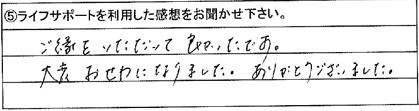 ⑤ライフサポートを利用した感想をお聞かせ下さい。
ご縁をいただいて良かったです。
大変おせわになりました。ありがとうございました。